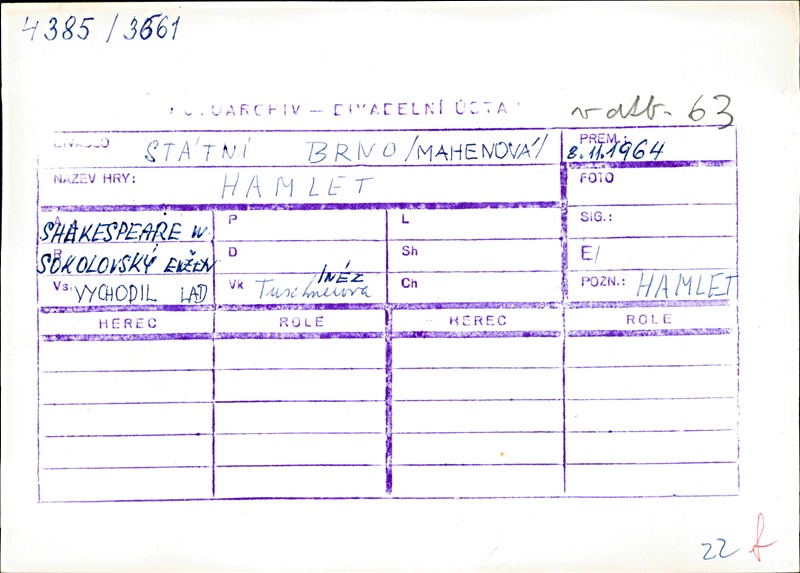 4385 / 3661
FOTOARCHIV — DIVADELNÍ ÚSTAV
63
DIVADLO STÁTNÍ BRNO /MAHENOVA/ PREM.: 8.11.1964
NÁZEV HRY: HAMLET FOTO
A SHAKESPEARE W. P L SIG.:
R SOKOLOVSKÝ EVŽEN D Sh E/
Vs. VYCHODIL LAD Vk INÉZ Tuschnerova Ch POZN.: HAMLET
HEREC ROLE HEREC ROLE
22 f